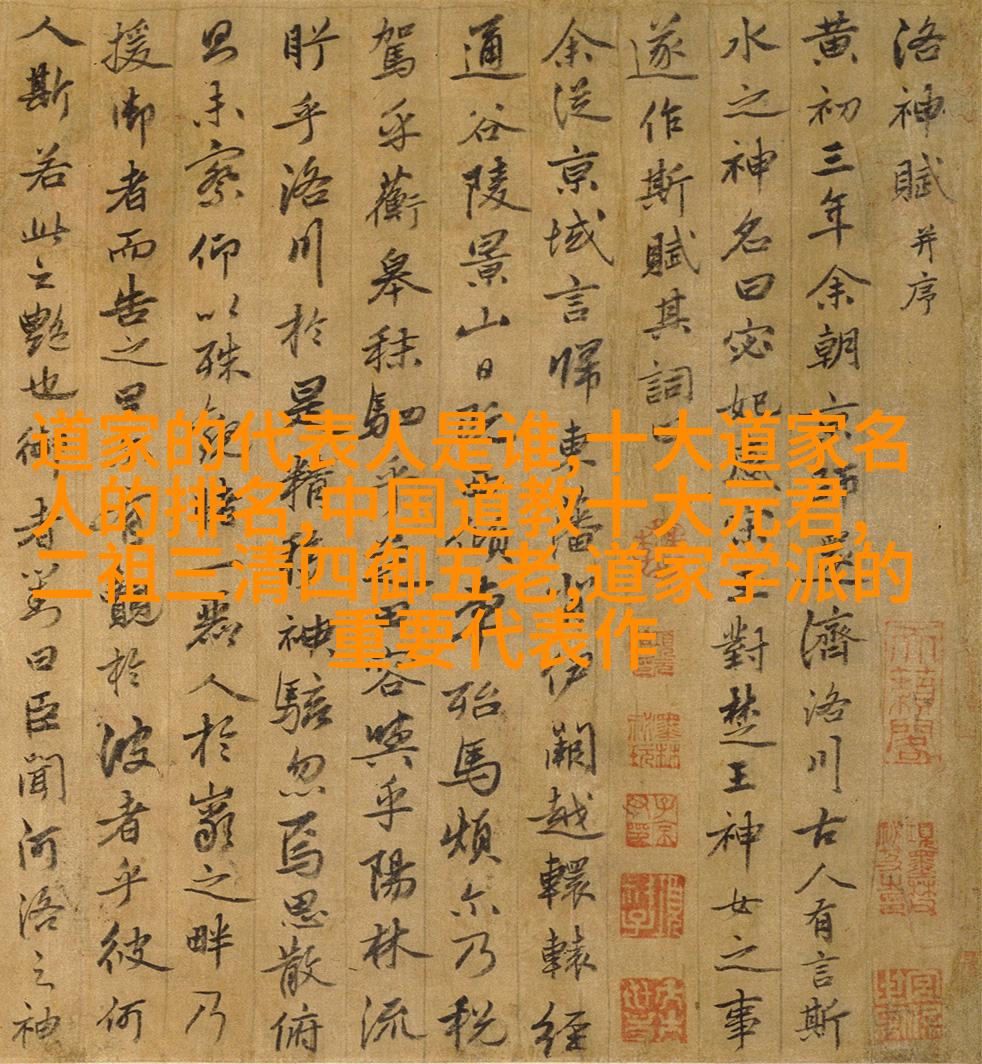 洛神賦并序
黄初三年余朝京師還濟洛川古人有言斯
水之神名曰宓妃感宋玉對楚王神女之事
遂作斯賦其詞曰
余從京域言歸東藩背伊闕越轘轅經
通谷陵景山日既西傾車殆馬煩尔乃税
駕乎蘅皋秣駟乎芝田容與乎陽林流
眄乎洛川於是精移神駭忽焉思散俯
則未察仰以殊觀睹一麗人於巖之畔乃
援御者而告之曰爾有覿於彼者乎彼何
人斯若此之艷也御者對曰臣聞河洛之神
道家的代表人是谁,十大道家名
人的排名,中国道教十大元君,
二祖三清四御五老,道家学派的
重要代表作